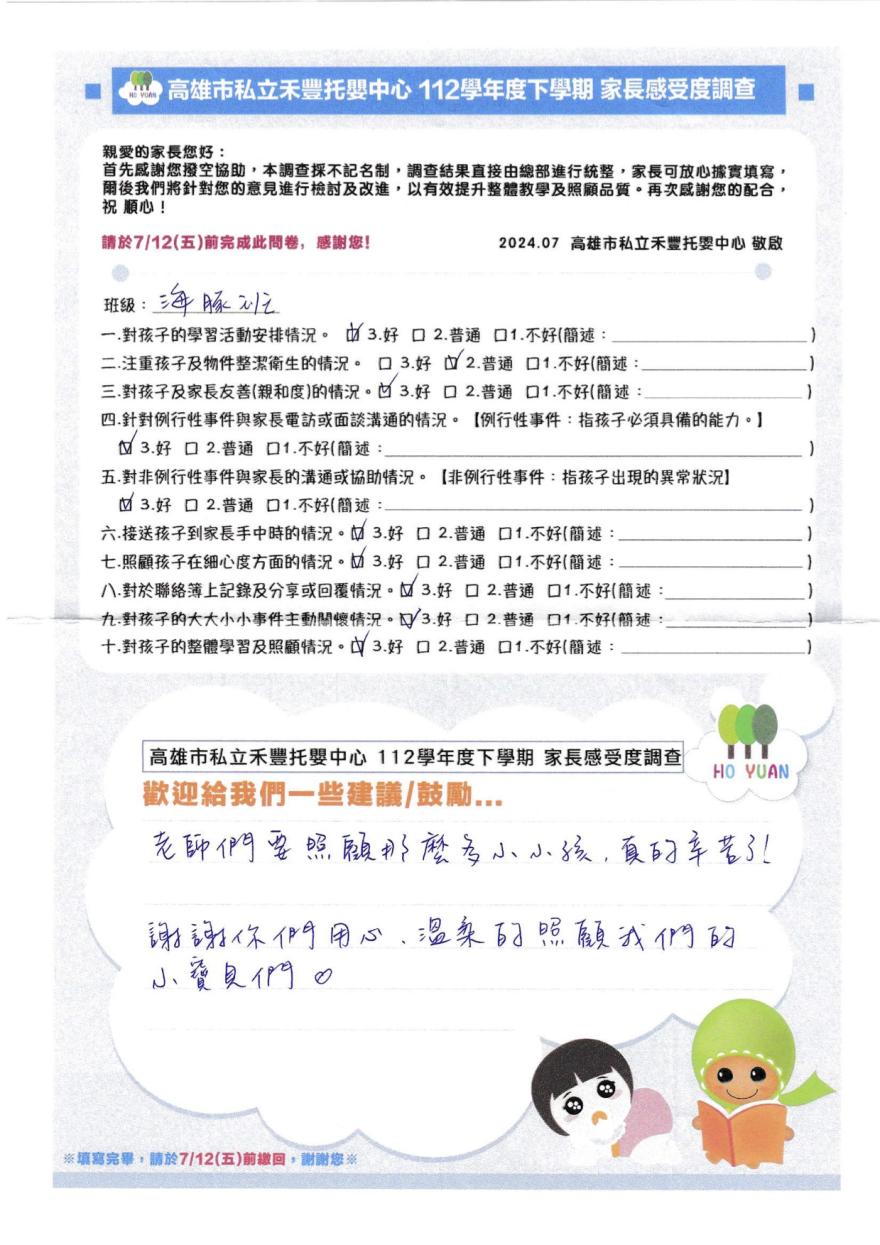 HO YUAN
高雄市私立禾豐托嬰中心 112學年度下學期 家長感受度調查
親愛的家長您好：
首先感謝您撥空協助，本調查採不記名制，調查結果直接由總部進行統整，家長可放心據實填寫，
爾後我們將針對您的意見進行檢討及改進，以有效提升整體教學及照顧品質。再次感謝您的配合，
祝 順心！
請於7/12(五)前完成此問卷，感謝您!
2024.07 高雄市私立禾豐托嬰中心 敬啟
班級：海豚班
一.對孩子的學習活動安排情況。 ☑ 3.好 □ 2.普通 □1.不好(簡述：__________)
二.注重孩子及物件整潔衛生的情況。 □ 3.好 ☑ 2.普通 □1.不好(簡述：__________)
三.對孩子及家長友善(親和度)的情況。☑ 3.好 □ 2.普通 □1.不好(簡述：__________)
四.針對例行性事件與家長電訪或面談溝通的情況。【例行性事件：指孩子必須具備的能力。】
☑ 3.好 □ 2.普通 □1.不好(簡述：__________)
五.對非例行性事件與家長的溝通或協助情況。【非例行性事件：指孩子出現的異常狀況】
☑ 3.好 □ 2.普通 □1.不好(簡述：__________)
六.接送孩子到家長手中時的情況。☑ 3.好 □ 2.普通 □1.不好(簡述：__________)
七.照顧孩子在細心度方面的情況。☑ 3.好 □ 2.普通 □1.不好(簡述：__________)
八.對於聯絡簿上記錄及分享或回覆情況。☑ 3.好 □ 2.普通 □1.不好(簡述：__________)
九.對孩子的大大小小事件主動關懷情況。☑ 3.好 □ 2.普通 □1.不好(簡述：__________)
十.對孩子的整體學習及照顧情況。☑ 3.好 □ 2.普通 □1.不好(簡述：__________)
高雄市私立禾豐托嬰中心 112學年度下學期 家長感受度調查
HO YUAN
歡迎給我們一些建議/鼓勵...
老師們要照顧那麼多小小孩，真的辛苦了!
謝謝你們用心、溫柔的照顧我們的
小寶貝們♡
※填寫完畢，請於7/12(五)前繳回，謝謝您※